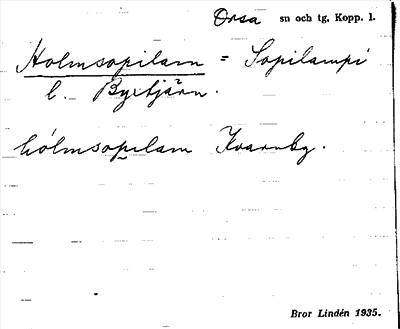 Orsa sn och tg. Kopp. l.
Holmsopilam = Sopilampi
l. Byxtjärn.
hólmsopilam Kvarnbg.
Bror Lindén 1935.